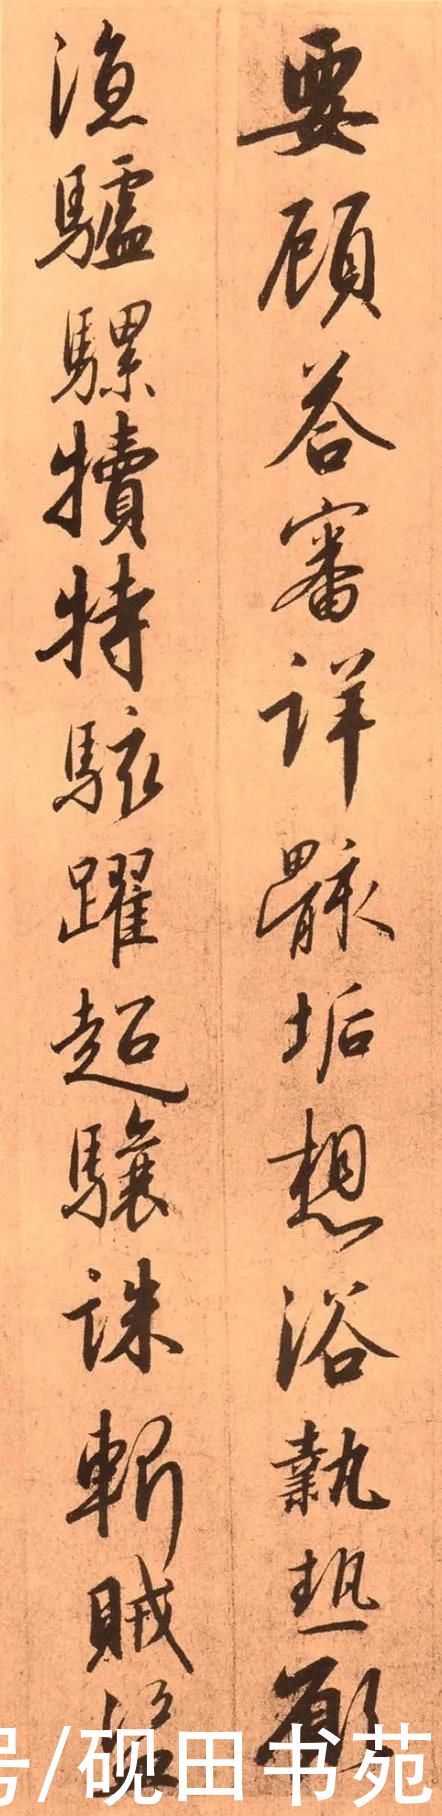 要顧答審詳骸垢想浴執熱願
涼驢騾犢特駭躍超驤誅斬賊盜
号/砚田书苑